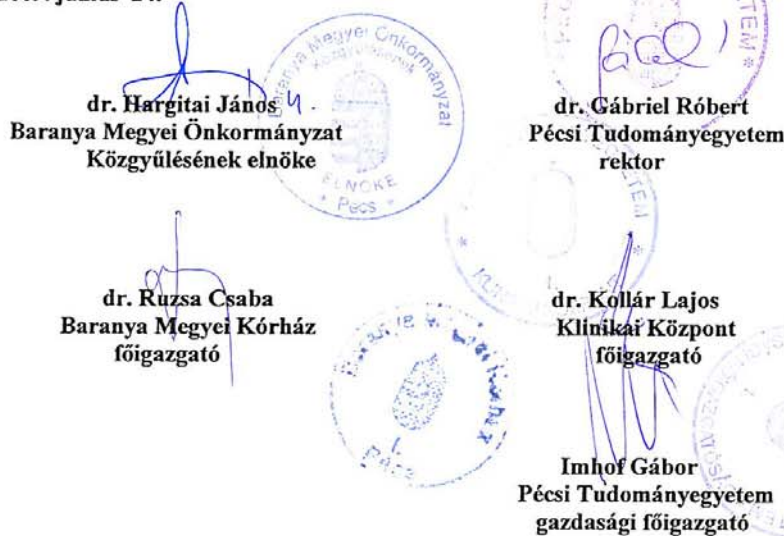 dr. Hargitai János
Baranya Megyei Önkormányzat
Közgyűlésének elnöke
Baranya Megyei Önkormányzat
Közgyűlésének
ELNÖKE
* Pécs *
dr. Gábriel Róbert
Pécsi Tudományegyetem
rektor
dr. Ruzsa Csaba
Baranya Megyei Kórház
főigazgató
dr. Kollár Lajos
Klinikai Központ
főigazgató
Baranya
Pécs
Imhof Gábor
Pécsi Tudományegyetem
gazdasági főigazgató